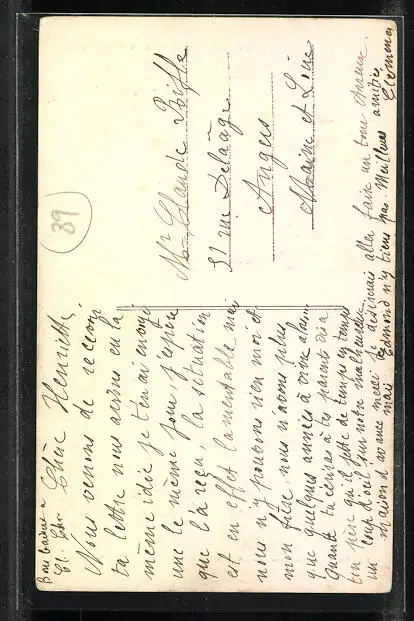 Bons baisers a
Cl. Chr.
Chère Henriette,
Nous venons de recevoir
ta lettre nous avions eu la
même idée je t'en ai envoyé
une le même jour, j'espère
que l'a reçu, la situation
est en effet lamentable mais
nous n'y pouvons rien moi et
mon frère nous n'avons plus
que quelques années à vivre alors
Quand tu écriras à tes parents dis a
ton père qu'il jette de temps en temps
un coup d'oeil sur notre malheureuse
maison d'avance merci je désirerais aller faire un tour
mais Edmond n'y tiens pas. Meilleures amitiés
Clemence
Mr Claude Poiffe
52 rue Delaâge
Angers
Maine et Loire
89